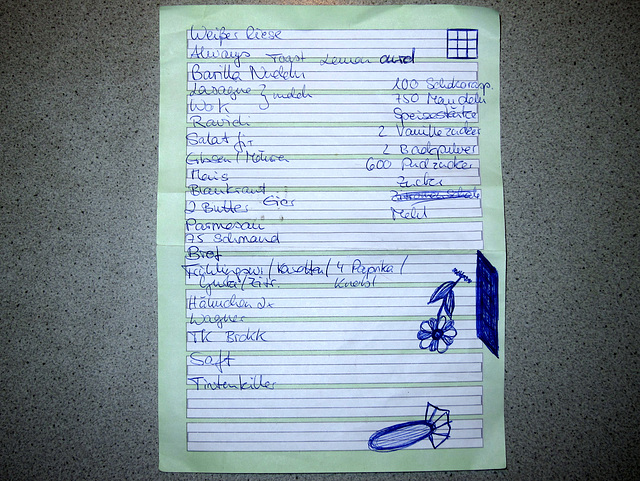 Weißer Riese
Always Toast
Barilla Nudeln
Lasagne } milch
Wok
Ravioli
Salat fix
Mais
Blaukraut
2 Butter Eier
Parmesan
75 Schmand
Brot
Frühlingszwi / Karotten / 4 Paprika /
Gurke / Zitr. Knobl
Hähnchen 2x
Wagner
TK Brokk
Saft
Tintenkiller
100 Schokorasp.
750 Mandeln
Speisestärke
2 Vanillezucker
2 Backpulver
600 Pudzucker
Zucker
Mehl